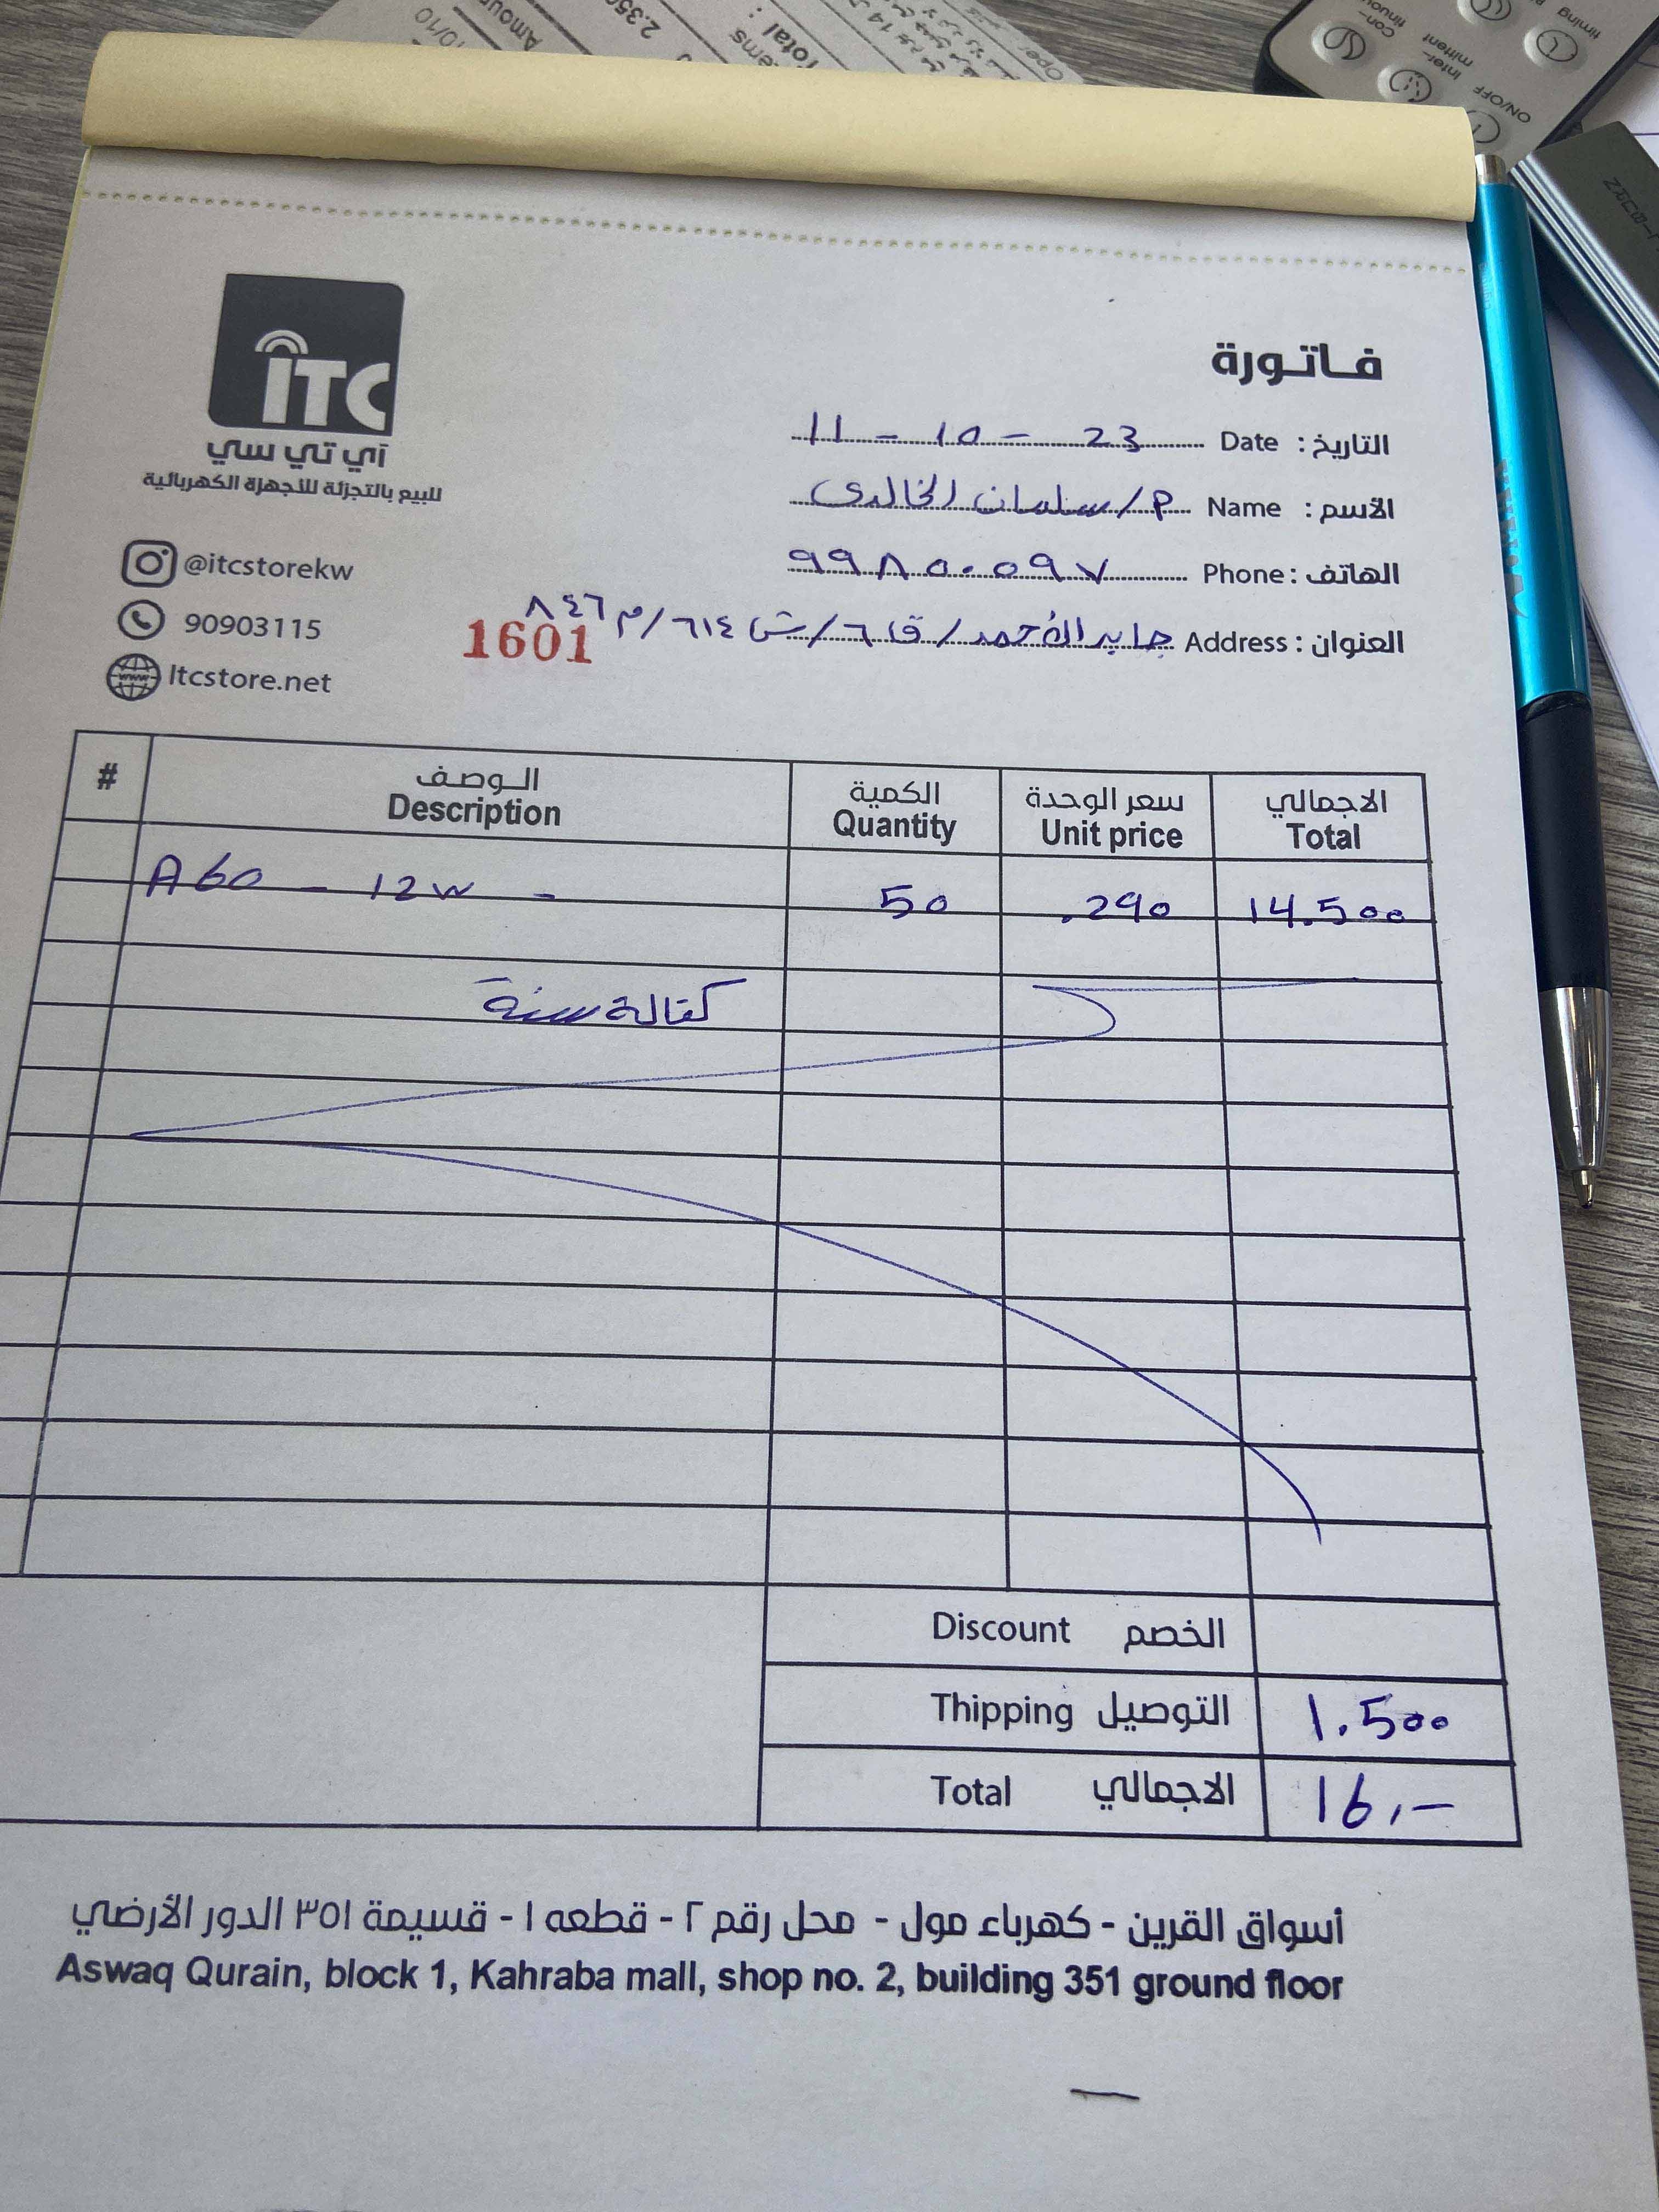 iTC
آي تي سي
للبيع بالتجزئة للأجهزة الكهربائية
@itcstorekw
90903115
Itcstore.net
فاتورة
التاريخ : Date 11 - 10 - 23
الأسم : Name م/سلمان الخالدي
الهاتف : Phone ٩٩٨٥٠٥٩٧
العنوان : Address جابر الأحمد / ق٦ / ش ٦١٤ / م ٨٤٦
1601
# الوصف Description الكمية Quantity سعر الوحدة Unit price الاجمالي Total
A60 - 12w - 50 .290 14.500
كفالة سنة
Discount الخصم
Thipping التوصيل 1.500
Total الاجمالي 16.-
أسواق القرين - كهرباء مول - محل رقم ٢ - قطعه ١ - قسيمة ٣٥١ الدور الأرضي
Aswaq Qurain, block 1, Kahraba mall, shop no. 2, building 351 ground floor
10/10
Amou
2.35
ems
Total :
Oper
Con-
tinuou
Inter-
mittent
timing
ON/OFF